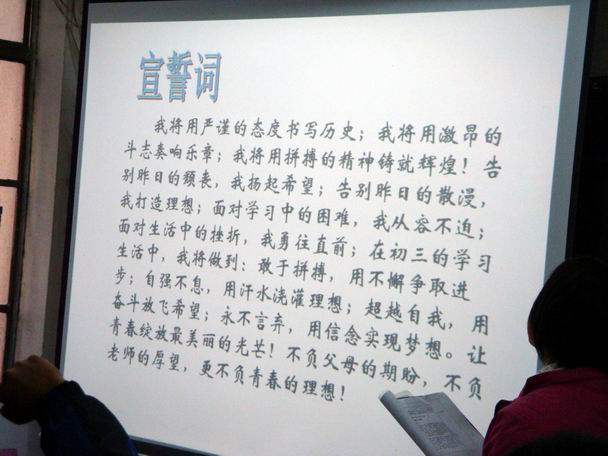 宣誓词
我将用严谨的态度书写历史；我将用激昂的
斗志奏响乐章；我将用拼搏的精神铸就辉煌！告
别昨日的颓丧，我扬起希望；告别昨日的散漫，
我打造理想；面对学习中的困难，我从容不迫；
面对生活中的挫折，我勇往直前；在初三的学习
生活中，我将做到：敢于拼搏，用不懈争取进
步；自强不息，用汗水浇灌理想；超越自我，用
奋斗放飞希望；永不言弃，用信念实现梦想。让
青春绽放最美丽的光芒！不负父母的期盼，不负
老师的厚望，更不负青春的理想！